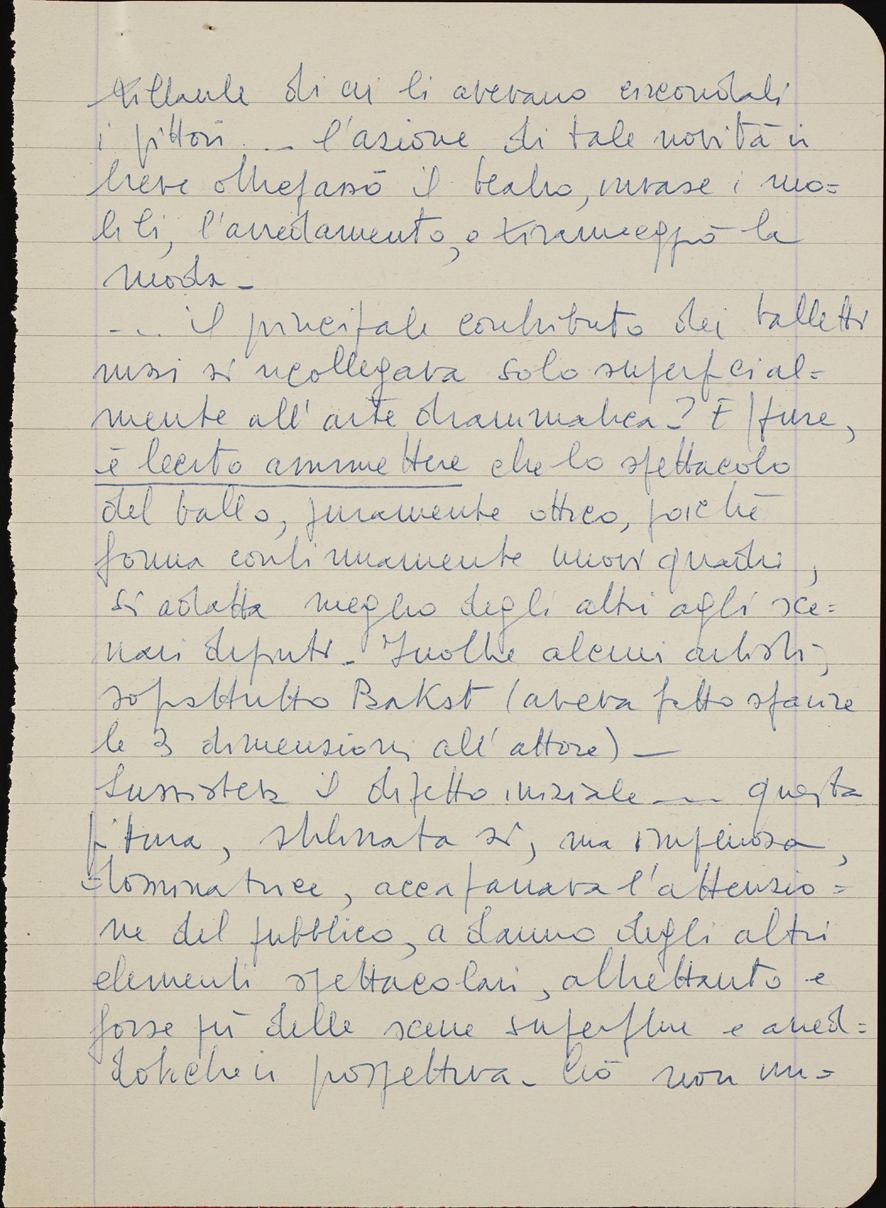 brillante di cui li avevano circondati
i pittori ... l'azione di tale novità in
breve oltrepassò il teatro, invase i mo=
bili, l'arredamento, e tiranneggiò la
moda -
... il principale contributo dei balletti
russi si ricollegava solo superficial=
mente all'arte drammatica? Eppure,
è lecito ammettere che lo spettacolo
del ballo, puramente ottico, poiché
forma continuamente nuovi quadri,
si adatta meglio degli altri agli sce=
nari dipinti - Inoltre alcuni artisti,
soprattutto Bakst (aveva fatto sparire
le 3 dimensioni all'attore) -
Sussisteva il difetto iniziale ... questa
pittura, stilizzata sì, ma imperiosa,
dominatrice, accaparrava l'attenzio=
ne del pubblico, a danno degli altri
elementi spettacolari, altrettanto e
forse più delle scene superflue e aned=
dotiche in prospettiva - Ciò non im=